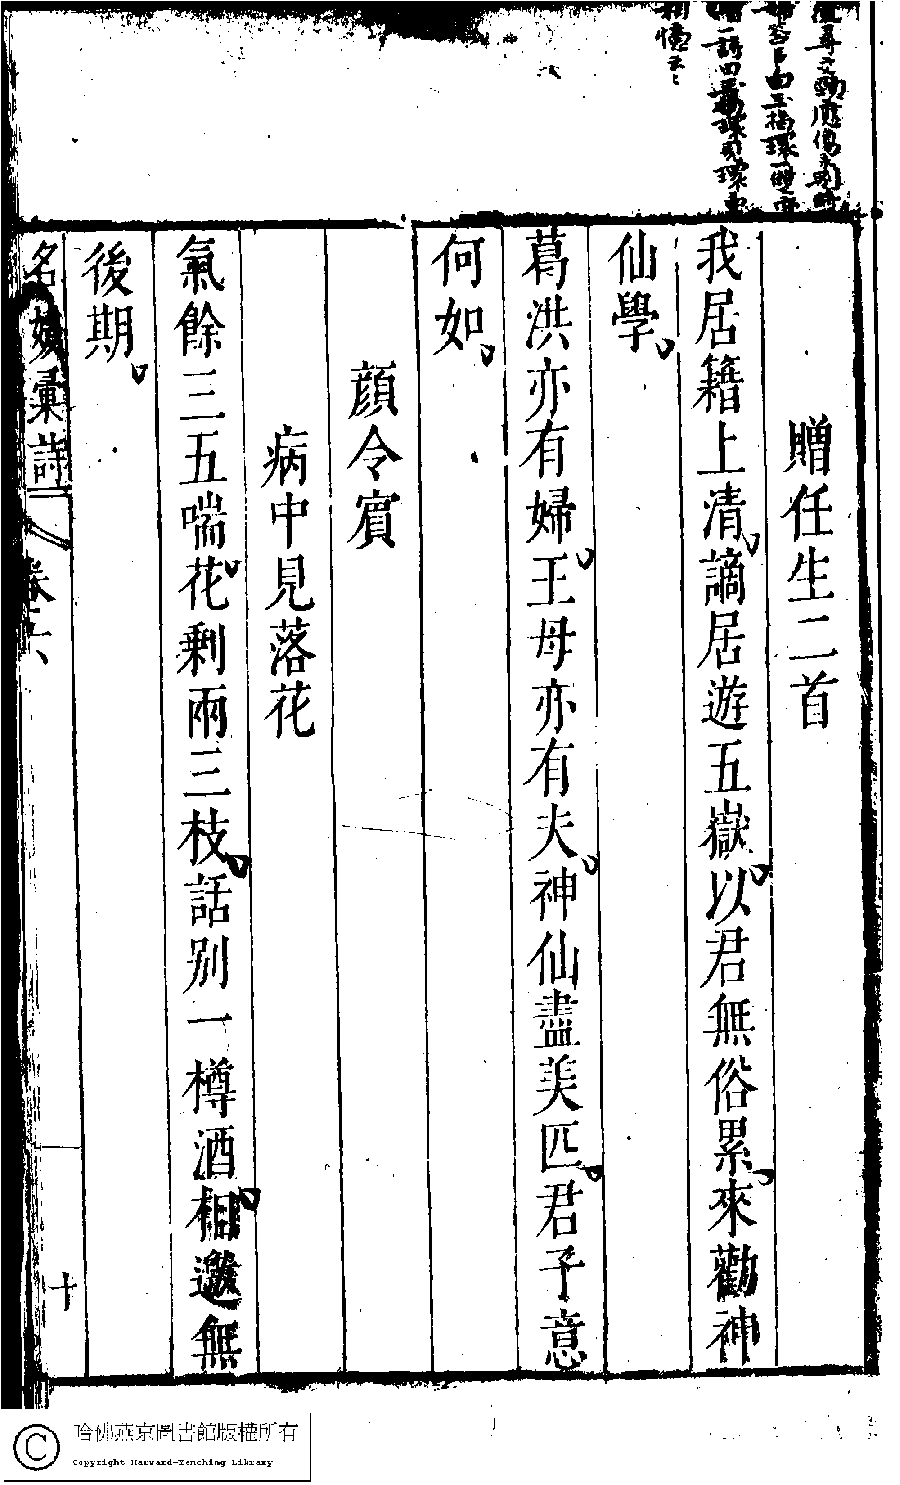 贈任生二首
我居籍上清謫居遊五嶽以君無俗累來勸神
仙學
葛洪亦有婦王母亦有夫神仙盡美匹君子意
何如
顔令賓
病中見落花
氣餘三五喘花剩兩三枝話别一樽酒相邀無
後期
名媛彙詩
卷十六
十
哈佛燕京圖書館版權所有
Copyright Harvard-Yenching Library